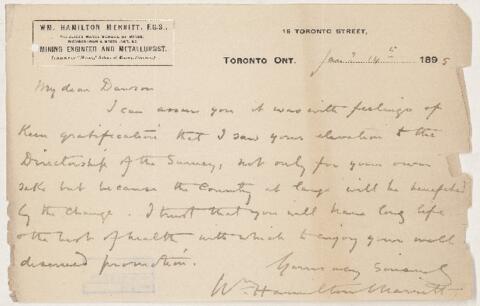 WM. HAMILTON MERRITT, F.G.S.,
MINING ENGINEER AND METALLURGIST.
15 TORONTO STREET,
TORONTO ONT. Jany 14th 1895
My dear Dawson
I can assure you it was with feelings of
keen gratification that I saw your elevation to the
Directorship of the Survey, not only for your own
sake but because the Country at large will be benefited
by the change. I trust that you will have long life
& the best of health with which to enjoy your well
deserved promotion.
Yours very sincerely
Wm Hamilton Merritt